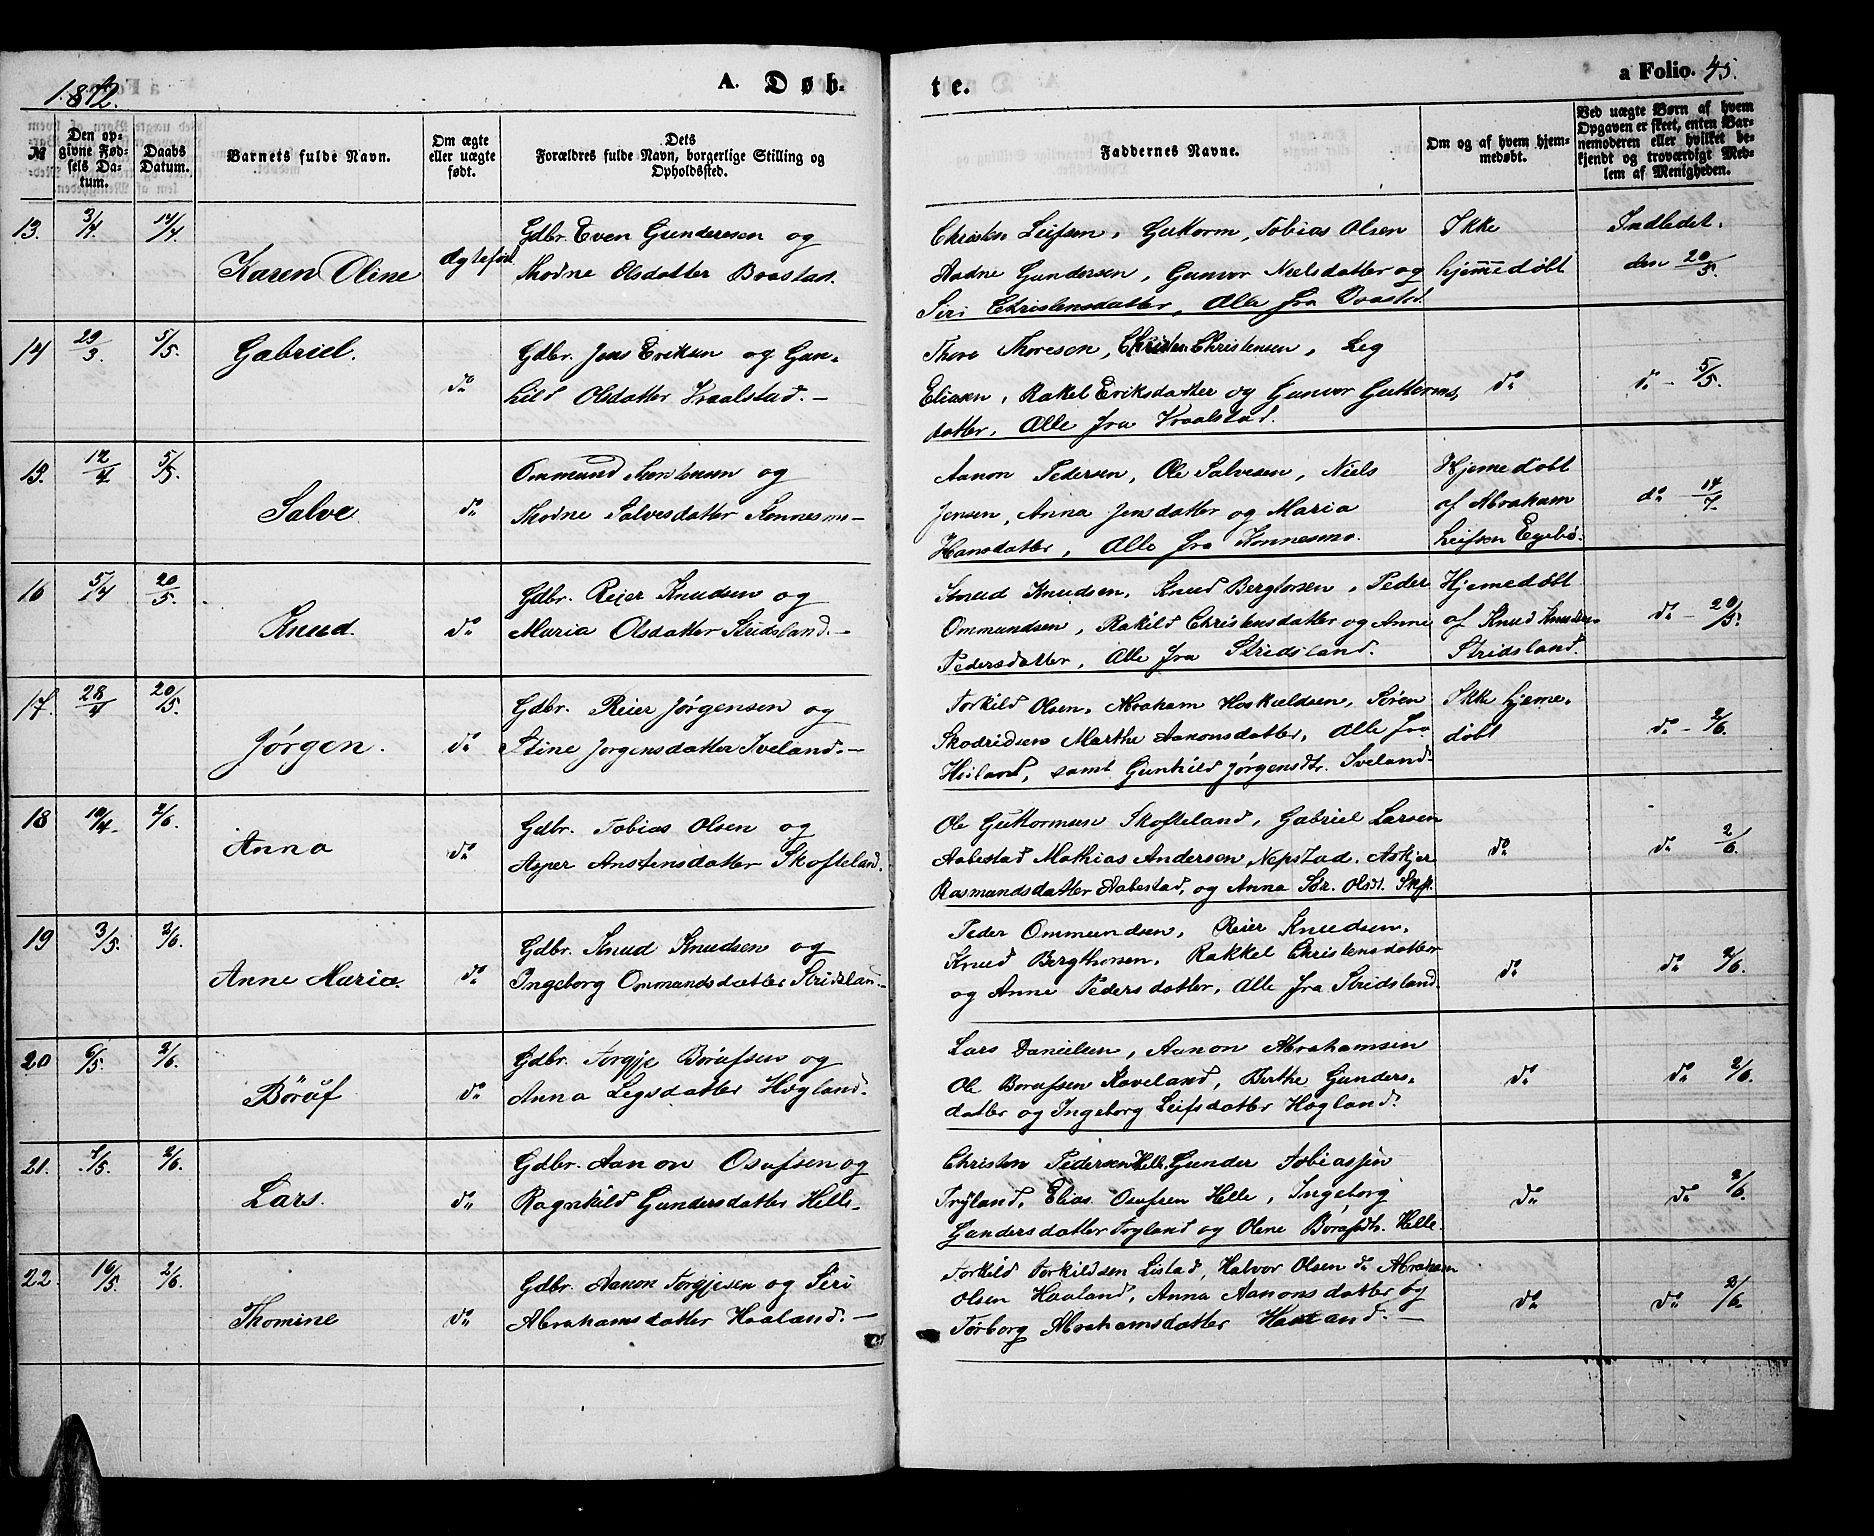 1872.
A. Døb-
te.
a Folio. 45.
№
Den op-
givne Fød-
sels Da-
tum.
Daabs
Datum.
Barnets fulde Navn.
Om ægte
eller uægte
født.
Dets
Forældres fulde Navn, borgerlige Stilling og
Opholdssted.
Faddernes Navne.
Om og af hvem hjem-
medøbt.
Ved uægte Børn af hvem
Opgaven er skeet, enten Bar-
nemoderen eller hvilket be-
kjendt og troværdigt Med-
lem af Menigheden.
13. 3/4 14/4
Karen Oline
Gdbr. Even Gundersen og
Thodne Olsdatter Brastad.
Christen Leifsen, Guttorm, Tobias Olsen
Aadne Gundersen, Gunvor Nielsdatter og
Siri Christensdatter, Alle fra Braastad.
Ikke
hjemmedøbt
Indledet.
den 20/5
14 29/3. 5/5.
Gabriel.
do
Gdbr. Jens Eriksen og Gun-
hild Olsdatter Vraalstad.-
Thore Thoresen, Christen Christensen, Leg
Eliasen, Rakel Eriksdatter og Gunvor Guttorms,
datter, Alle fra Vraalstad.
do
do - 5/5.
15. 12/4 5/5.
Salve
do
Ommund Mortensen og
Thodne Salvesdatter Konnesmo-
Aanon Pedersen, Ole Salvesen, Niels
Jensen, Anna Jensdatter og Maria
Hansdatter, Alle fra Konnesmo.
Hjemedøbt
af Abraham
Leifsen Egebø.
do 14/7
16 5/4 20/5.
Knud
do
Gdbr. Reier Knudsen og
Maria Olsdatter Stridsland.-
Knud Knudsen, Knud Bergtorsen, Peder
Ommundsen, Rakild Christensdatter og Anne
Pedersdatter, Alle fra Stridsland.
Hjemedøbt
af Knud Knudsen
Stridsland.
do - 20/5.
17. 28/4 20/5.
Jørgen.
do
Gdbr. Reier Jørgensen og
Stine Jørgensdatter Iveland.-
Torkild Olsen, Abraham Hoskuldsen, Søren
Skodridsen Marthe Aanonsdatter, Alle fra
Høiland, samt Gunhild Jørgensdtr. Iveland-
Ikke hjeme-
døbt
do - 2/6.
18 10/4 2/6.
Anna
do
Gdbr. Tobias Olsen og
Asper Anstensdatter Skofteland.
Ole Guttormsen Skofteland, Gabriel Larsen
Aabestad Mathias Andersen, Nepstad. Askjer
Rasmundsdatter Aabestad, og Anna Sør. Olsdt. Skft.
do
do 2/6.
19 3/5. 2/6.
Anne Maria.
do
Gdbr. Knud Knudsen og
Ingeborg Ommundsdatter Stridsland-
Peder Ommundsen, Reier Knudsen,
Knud Bergthorsen, Rakkel Christensdatter
og Anne Pedersdatter, Alle fra Stridsland.
do
do 2/6.
20 6/5. 2/6.
Böruf
do
Gdbr. Torgje Börufsen og
Anna Legsdatter Høgland.
Lars Danielsen, Aanon Abrahamsen
Ole Borufsen Raveland, Berthe Gunders-
datter og Ingeborg Leifsdatter Høgland.
do
do 2/6.
21. 4/5. 2/6.
Lars.
do
Gdbr. Aanon Osufsen og
Ragnhild Gundersdatter Helle.
Christen Pedersen Helle, Gunder Tobiassen
Tryland, Elias Osufsen Helle, Ingeborg
Gundersdatter Tryland og Olene Börufsdt. Helle.
do
do 2/6.
22. 16/5. 2/6.
Thomine
do
Gdbr. Aanon Torgjesen og Siri
Abrahamsdatter Haaland.-
Torkild Torkildsen Listad, Halvor Olsen do Abraham
Olsen Haaland, Anna Aanonsdatter og
Torborg Abrahamsdatter Haaland.-
do
do 2/6.